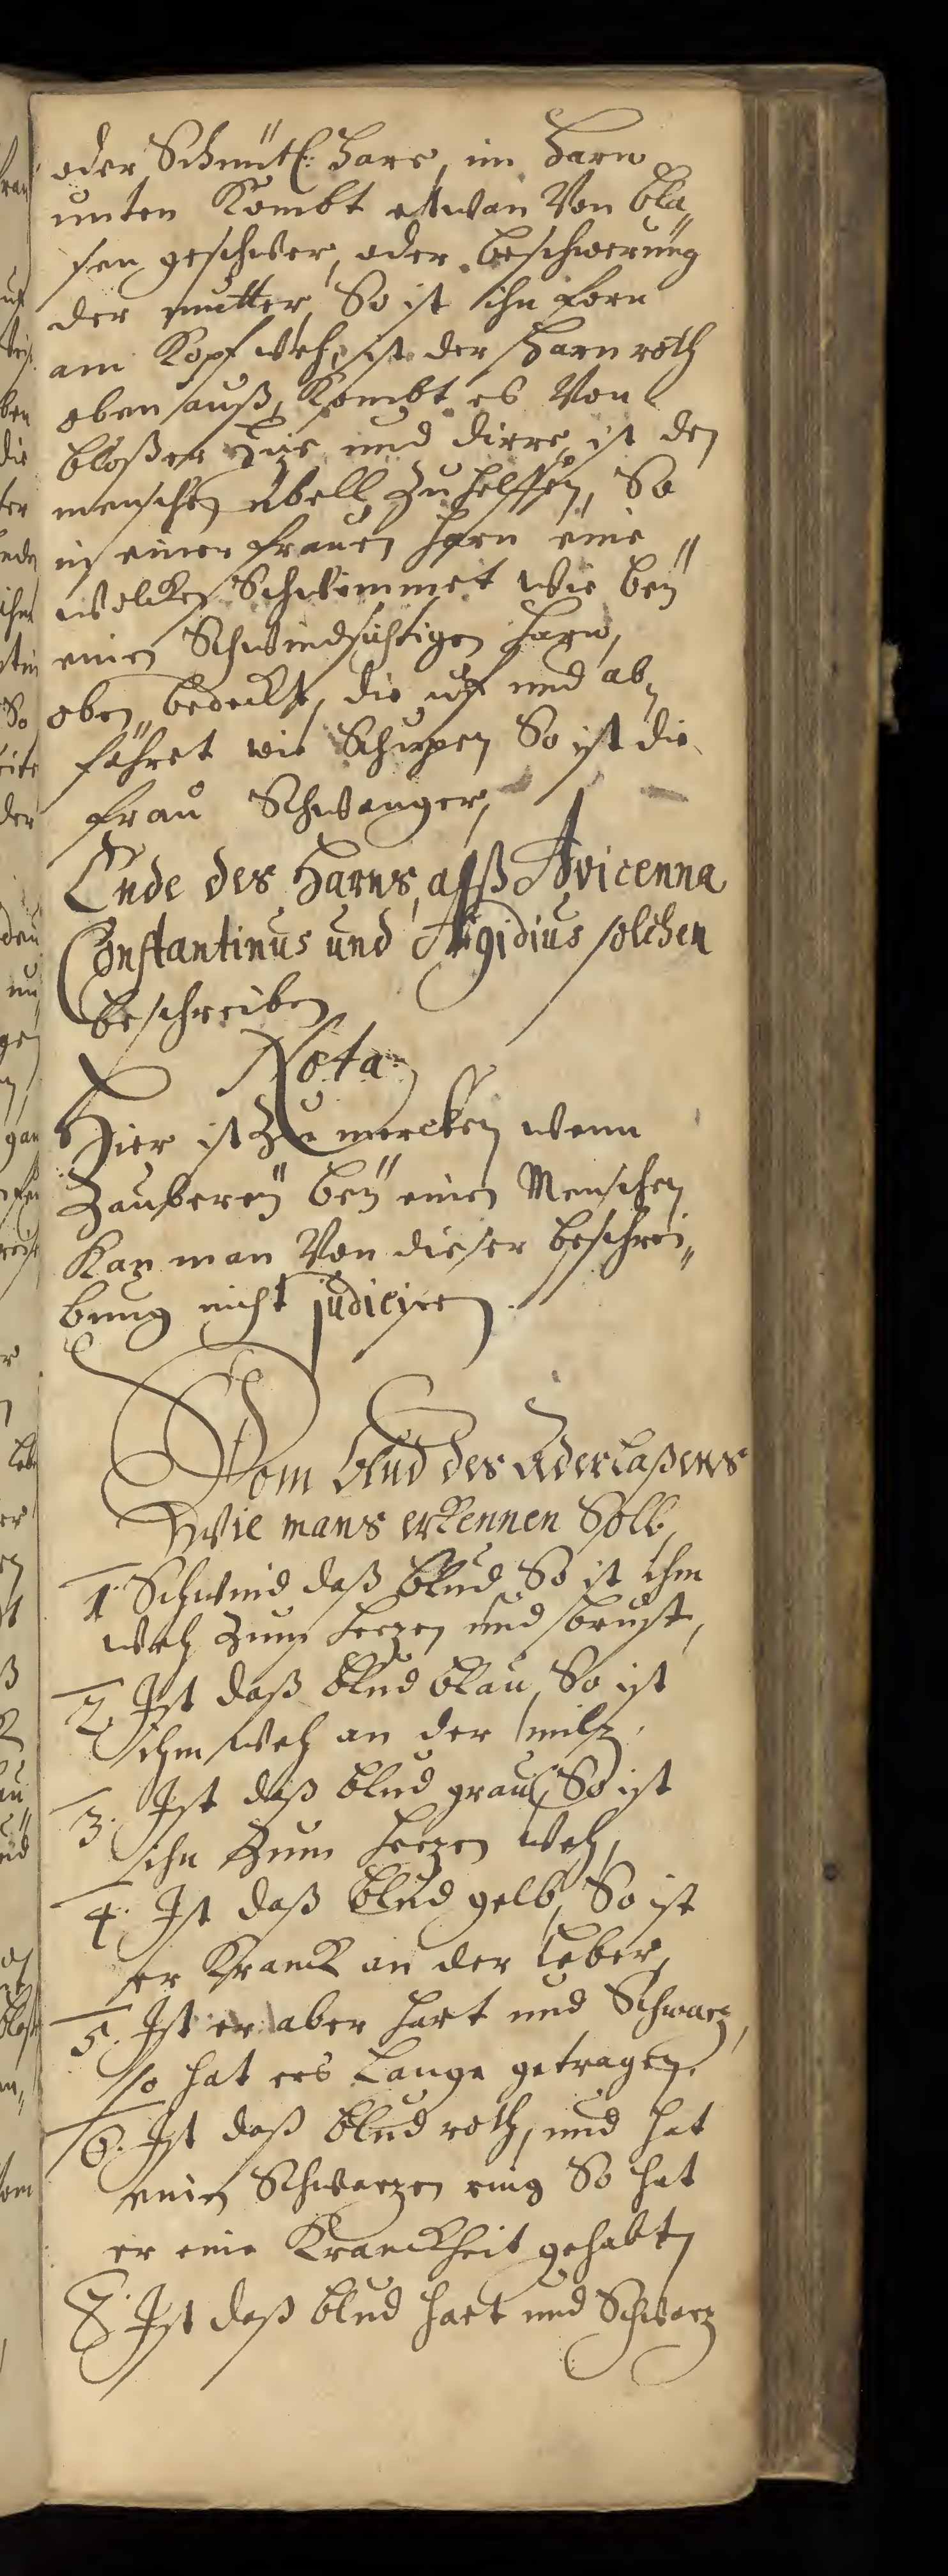 oder Schnütl: harr, im harn
unten Kombt etwan Von bla„
sen geschwer, oder beschwerung
der mutter, So ist ihn forn
am Kopf weh, ist der Harn roth
oben auß, Kombt es Von
bloßer Hize und dirre, ist den
menschen übell zu helffen, So
in einer frauen harn eine
wolcken Schwimmet wie beÿ
einen Schwindsichtigen harn,
oben bedeckt, die uf und ab
fähret wie Schupen So ist die
frau Schwanger,
Ende des Harns, alß Avicenna
Constantinus und Ægidius solchen
beschreiben
Nota
Hier ist zu mercken wenn
Zaubereÿ beÿ einen Menschen
Kan man Von dieser beschrei„
bung nicht judicire.
Vom blud des Aderlaßens
Wie mans erkennen Soll,
1. Schwind daß blud So ist ihm
weh zum herzen und brust,
2. Ist daß blud blau, So ist
ihm weh an der milz,
3. Ist daß blud grau, So ist
ihn zum herzen weh,
4. Ist daß blud gelb, So ist
er Kranck an der leber,
5. Ist er aber hart und Schwarz,
so hat ers Lange getragen.
6. Ist daß blud roth, und hat
einen Schwarzen ring So hat
er eine Kranckheit gehabt,
7. Ist daß blud hart und Schwarz